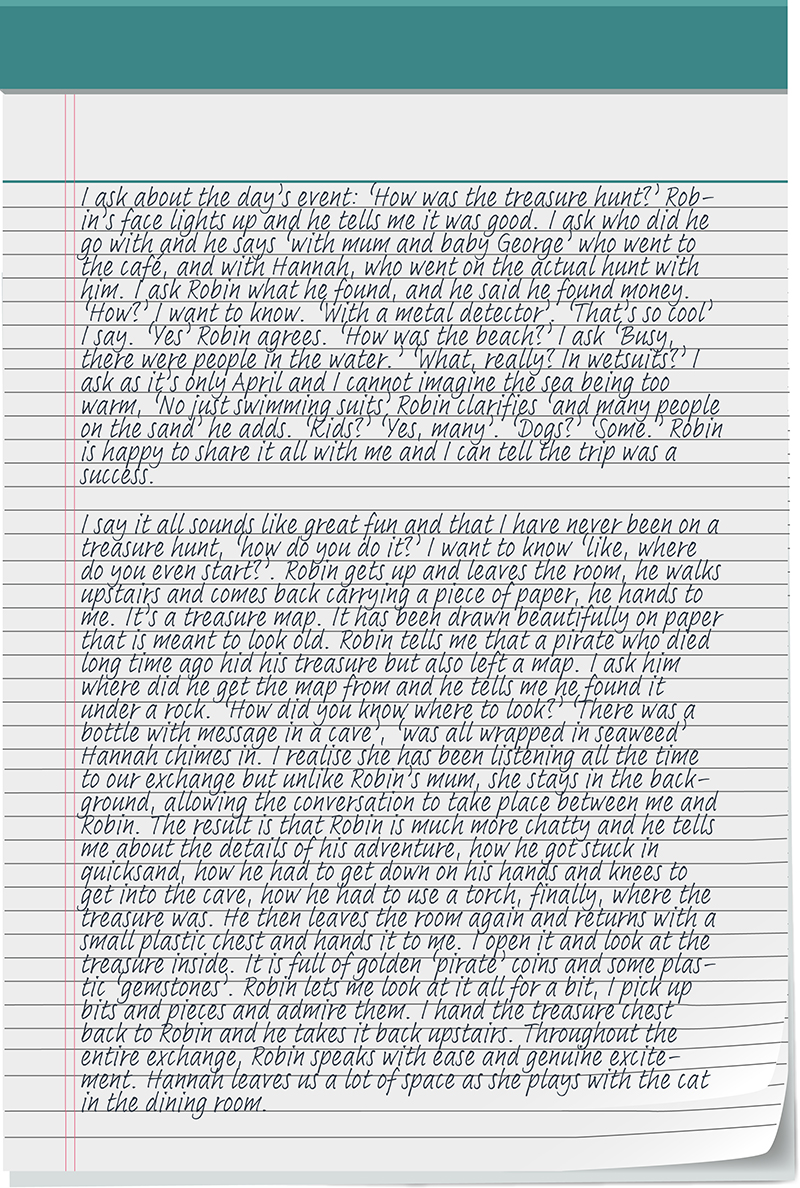 I ask about the day's event: 'How was the treasure hunt?' Rob-
in's face lights up and he tells me it was good. I ask who did he
go with and he says 'with mum and baby George' who went to
the café, and with Hannah, who went on the actual hunt with
him. I ask Robin what he found, and he said he found money.
'How?' I want to know. 'With a metal detector'. 'That's so cool'
I say. 'Yes' Robin agrees. 'How was the beach?' I ask 'Busy,
there were people in the water.' 'What, really? In wetsuits?' I
ask as it's only April and I cannot imagine the sea being too
warm, 'No just swimming suits' Robin clarifies 'and many people
on the sand' he adds. 'Kids?' 'Yes, many'. 'Dogs?' 'Some.' Robin
is happy to share it all with me and I can tell the trip was a
success.

I say it all sounds like great fun and that I have never been on a
treasure hunt, 'how do you do it?' I want to know 'like, where
do you even start?'. Robin gets up and leaves the room, he walks
upstairs and comes back carrying a piece of paper, he hands to
me. It's a treasure map. It has been drawn beautifully on paper
that is meant to look old. Robin tells me that a pirate who died
long time ago hid his treasure but also left a map. I ask him
where did he get the map from and he tells me he found it
under a rock. 'How did you know where to look?' 'There was a
bottle with message in a cave', 'was all wrapped in seaweed'
Hannah chimes in. I realise she has been listening all the time
to our exchange but unlike Robin's mum, she stays in the back-
ground, allowing the conversation to take place between me and
Robin. The result is that Robin is much more chatty and he tells
me about the details of his adventure, how he got stuck in
quicksand, how he had to get down on his hands and knees to
get into the cave, how he had to use a torch, finally, where the
treasure was. He then leaves the room again and returns with a
small plastic chest and hands it to me. I open it and look at the
treasure inside. It is full of golden 'pirate' coins and some plas-
tic 'gemstones'. Robin lets me look at it all for a bit, I pick up
bits and pieces and admire them. I hand the treasure chest
back to Robin and he takes it back upstairs. Throughout the
entire exchange, Robin speaks with ease and genuine excite-
ment. Hannah leaves us a lot of space as she plays with the cat
in the dining room.